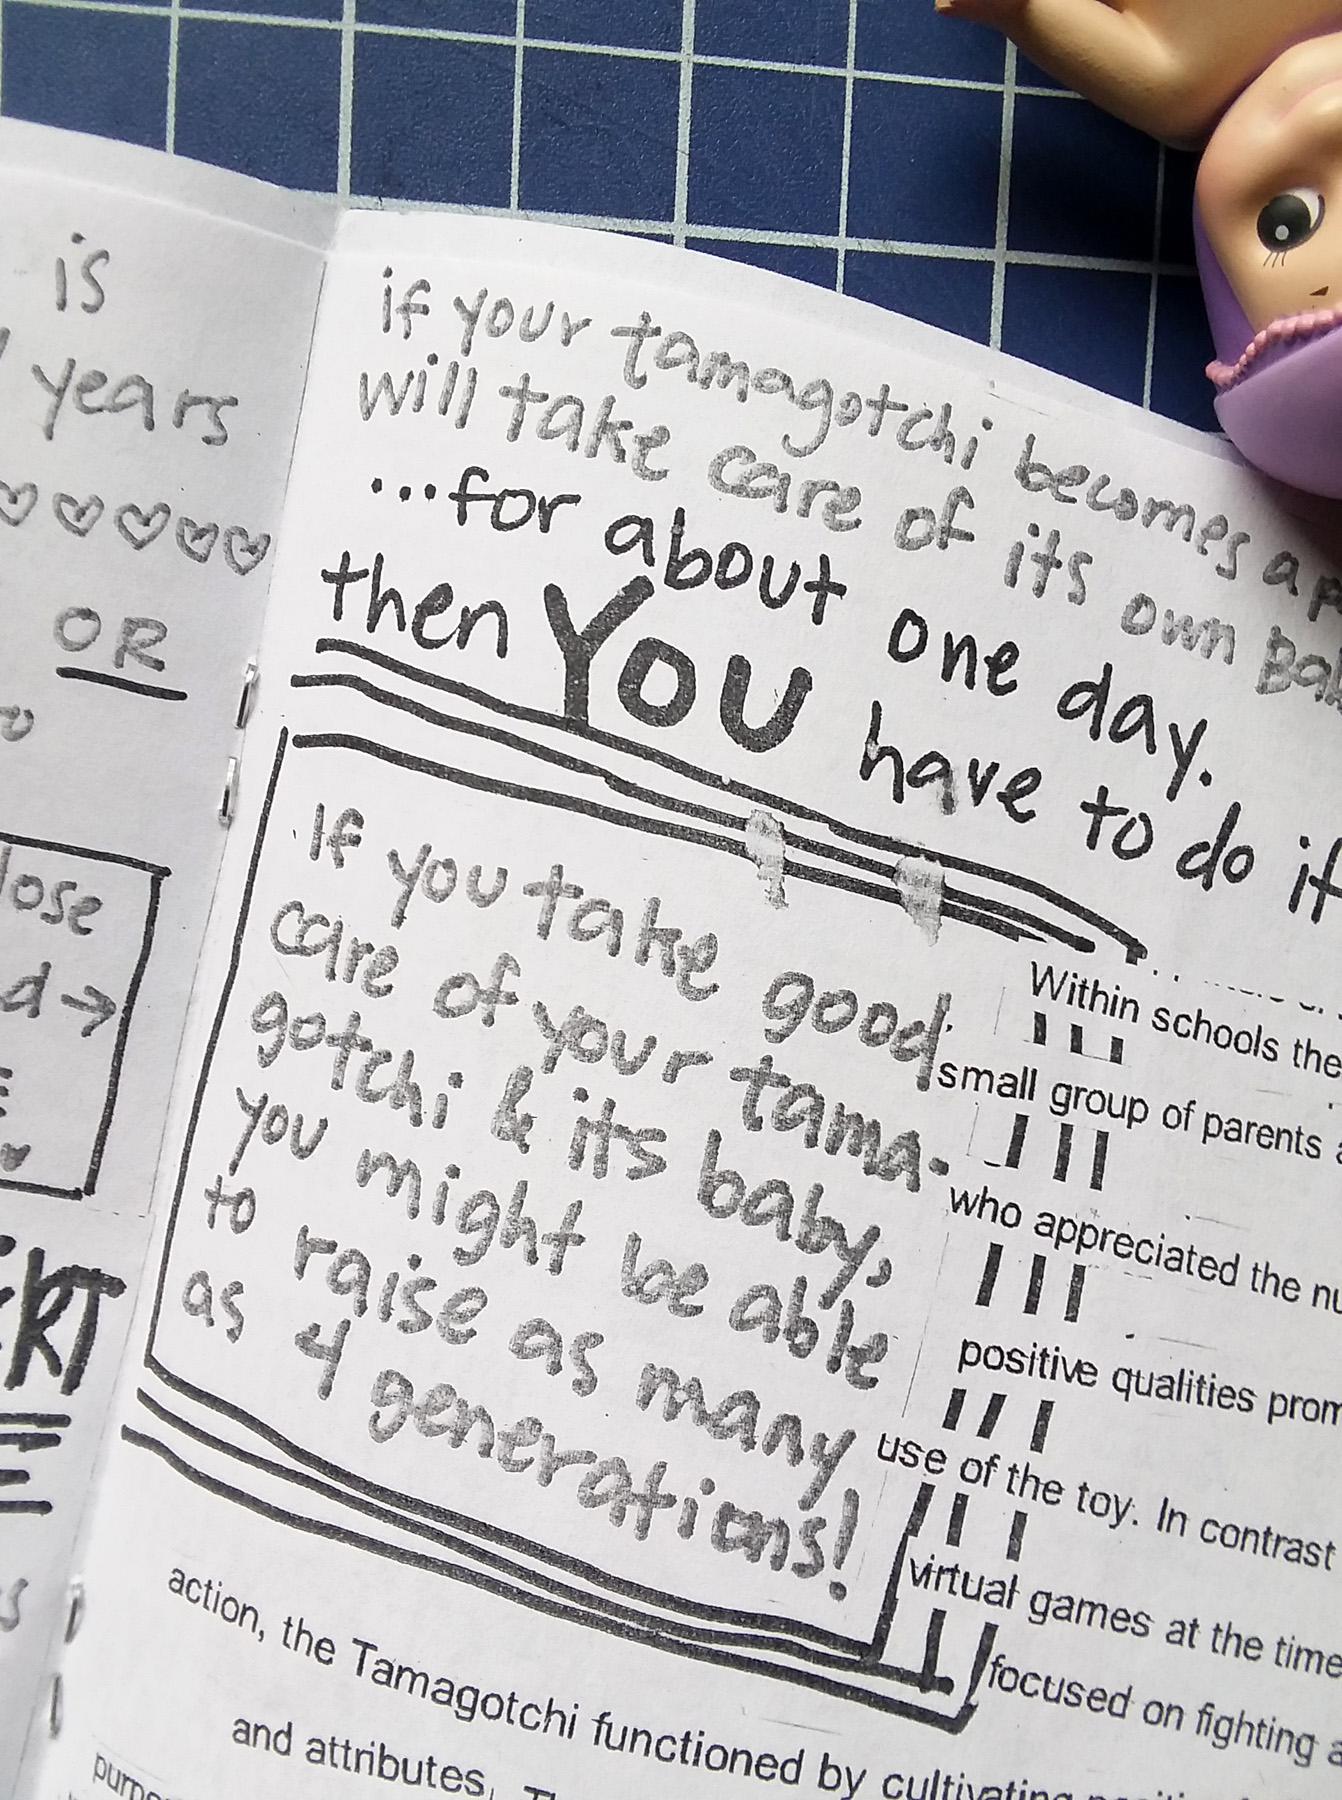 is
years
OR
lose
d →
if your tamagotchi becomes a
will take care of its own
...for about one day.
then YOU have to do it
If you take good
care of your tama-
gotchi & its baby,
you might be able
to raise as many
as 4 generations!
Within schools the
small group of parents
who appreciated the
positive qualities
use of the toy. In contrast
virtual games at the time
focused on fighting
action, the Tamagotchi functioned by cultivating
and attributes.